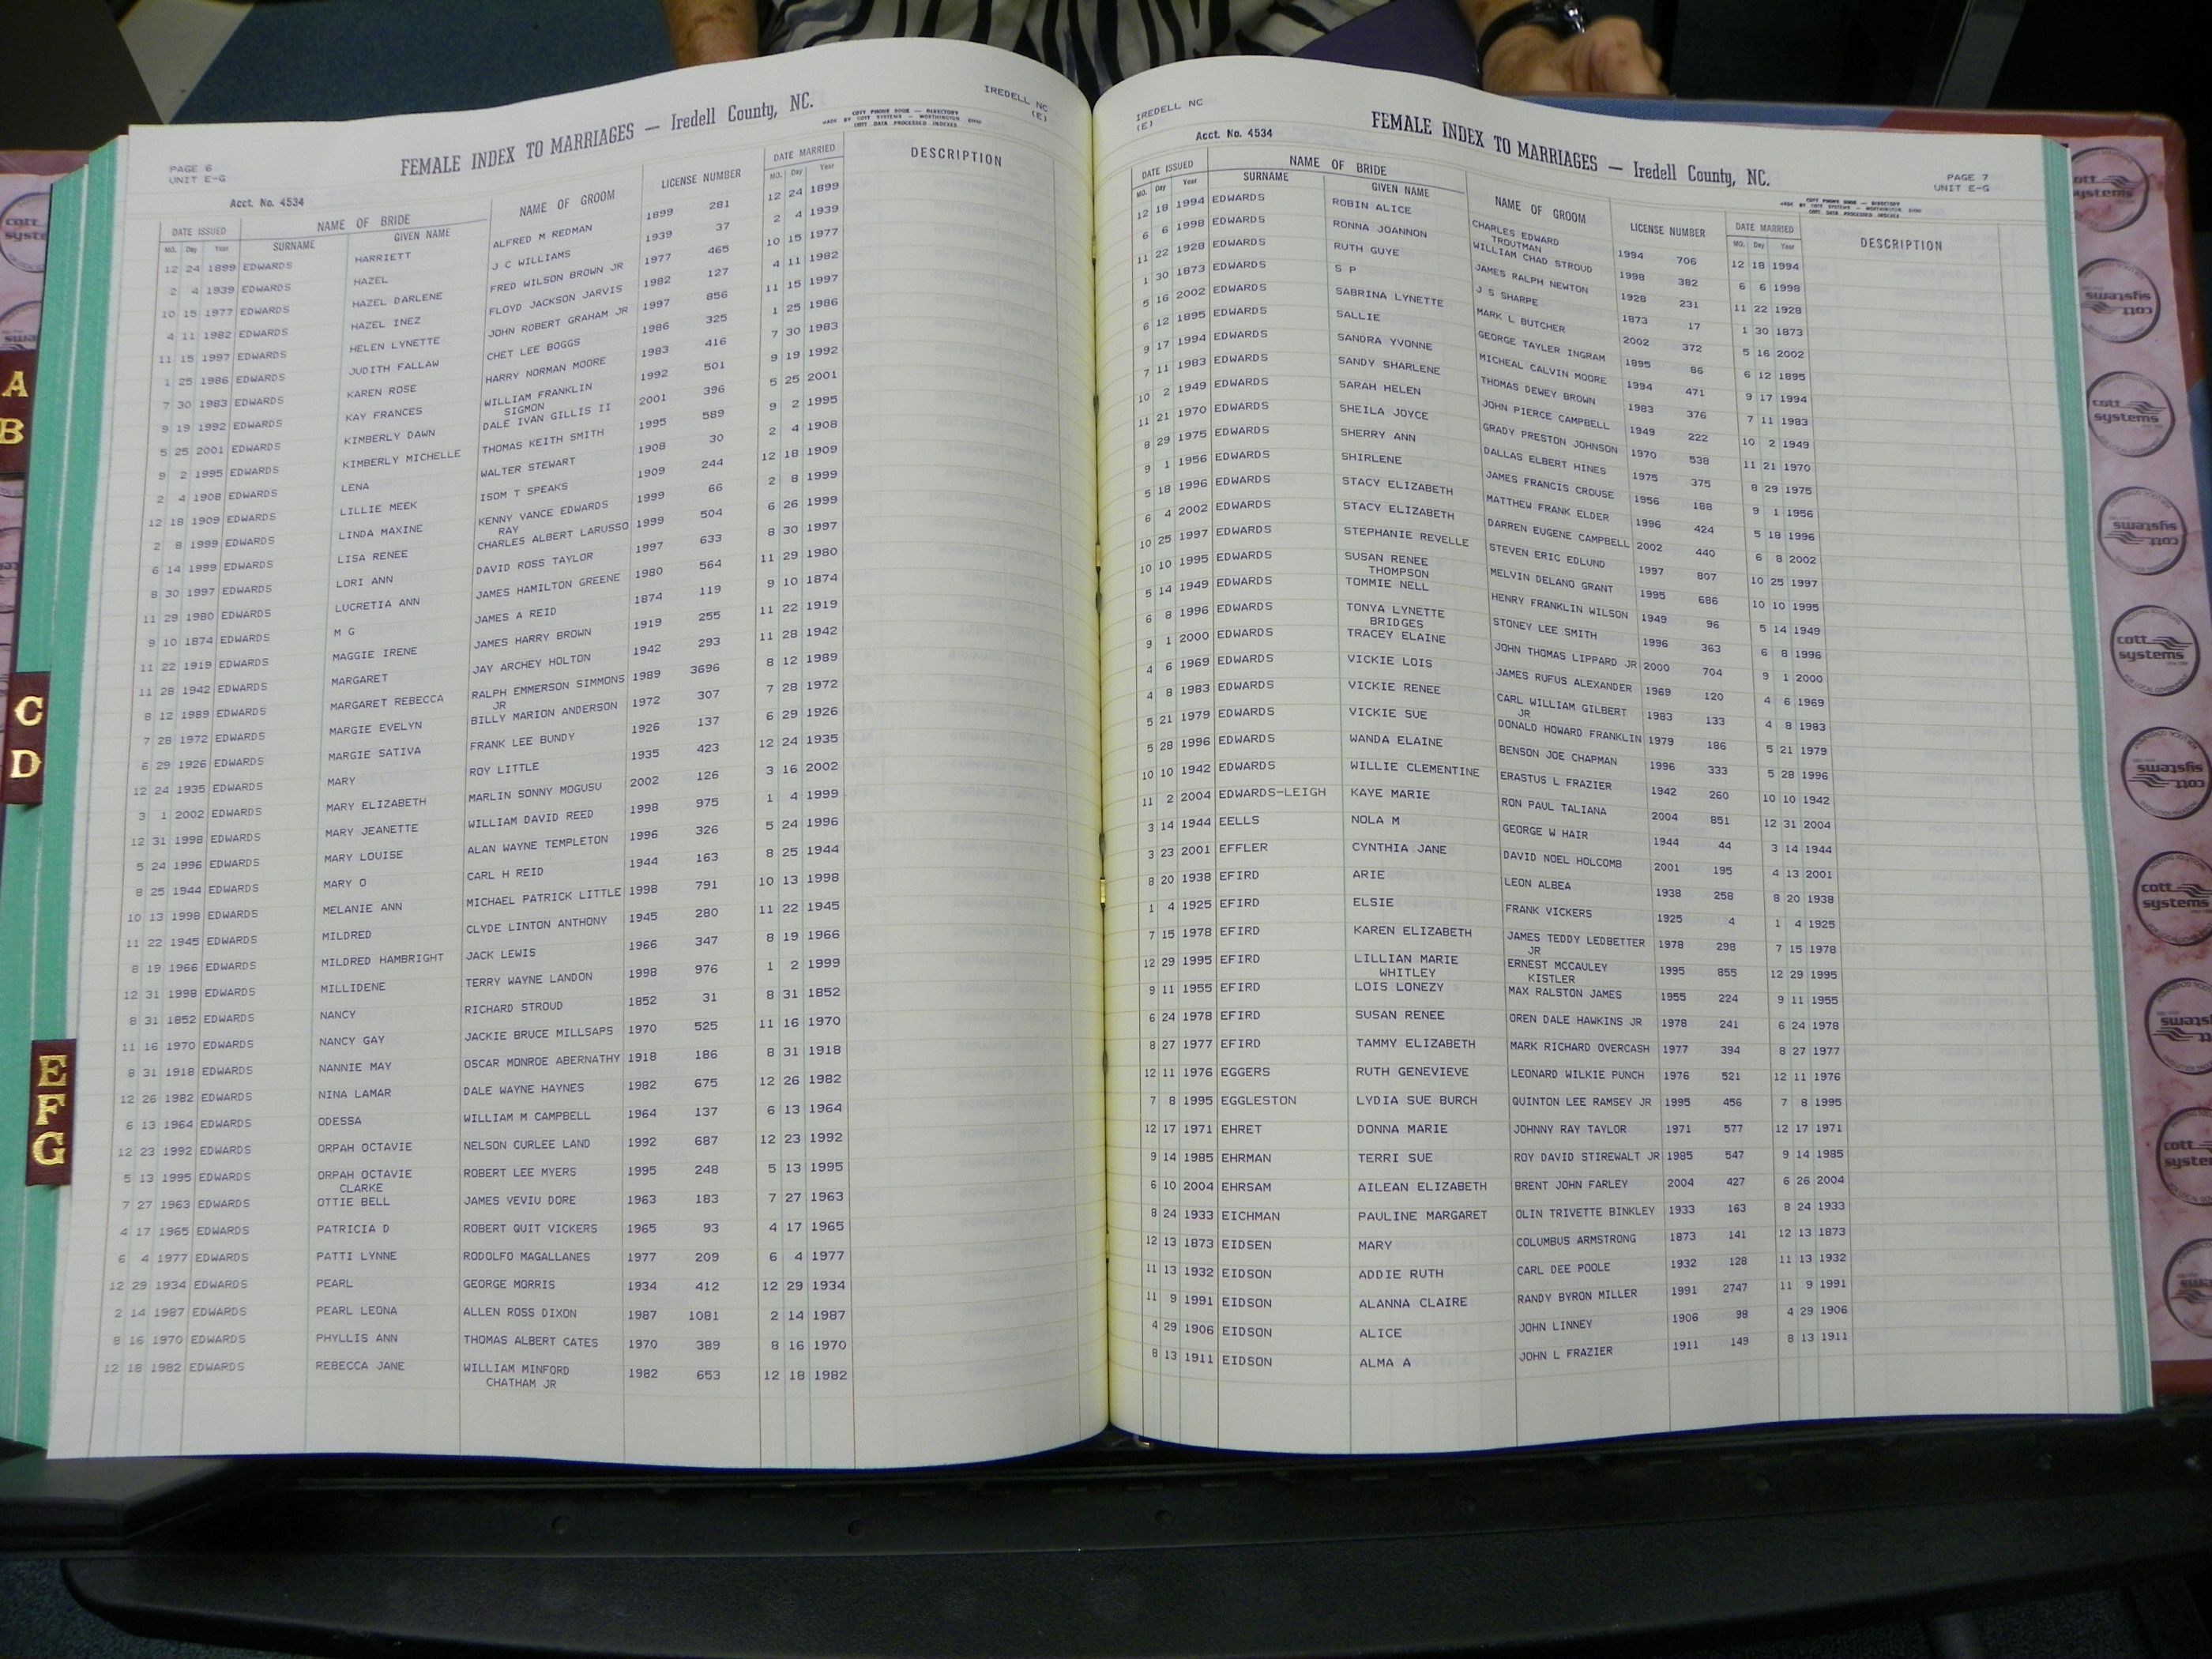 IREDELL NC
(E)
PAGE 6
UNIT E-G
FEMALE INDEX TO MARRIAGES — Iredell County, NC.
MADE BY COTT PHONE BOOK — DIRECTORY
COTT SYSTEMS — WORTHINGTON
COTT DATA PROCESSED INDEXES
Acct. No. 4534
DATE ISSUED NAME OF BRIDE NAME OF GROOM LICENSE NUMBER DATE MARRIED DESCRIPTION
MO. Day Year SURNAME GIVEN NAME MO. Day Year
12 24 1899 EDWARDS HARRIETT ALFRED M REDMAN 1899 281 12 24 1899
2 4 1939 EDWARDS HAZEL J C WILLIAMS 1939 37 2 4 1939
10 15 1977 EDWARDS HAZEL DARLENE FRED WILSON BROWN JR 1977 465 10 15 1977
4 11 1982 EDWARDS HAZEL INEZ FLOYD JACKSON JARVIS 1982 127 4 11 1982
11 15 1997 EDWARDS HELEN LYNETTE JOHN ROBERT GRAHAM JR 1997 856 11 15 1997
1 25 1986 EDWARDS JUDITH FALLAW CHET LEE BOGGS 1986 325 1 25 1986
7 30 1983 EDWARDS KAREN ROSE HARRY NORMAN MOORE 1983 416 7 30 1983
9 19 1992 EDWARDS KAY FRANCES WILLIAM FRANKLIN 1992 501 9 19 1992
SIGMON
5 25 2001 EDWARDS KIMBERLY DAWN DALE IVAN GILLIS II 2001 396 5 25 2001
9 2 1995 EDWARDS KIMBERLY MICHELLE THOMAS KEITH SMITH 1995 589 9 2 1995
2 4 1908 EDWARDS LENA WALTER STEWART 1908 30 2 4 1908
12 18 1909 EDWARDS LILLIE MEEK ISOM T SPEAKS 1909 244 12 18 1909
2 8 1999 EDWARDS LINDA MAXINE KENNY VANCE EDWARDS 1999 66 2 8 1999
RAY
6 14 1999 EDWARDS LISA RENEE CHARLES ALBERT LARUSSO 1999 504 6 26 1999
8 30 1997 EDWARDS LORI ANN DAVID ROSS TAYLOR 1997 633 8 30 1997
11 29 1980 EDWARDS LUCRETIA ANN JAMES HAMILTON GREENE 1980 564 11 29 1980
9 10 1874 EDWARDS M G JAMES A REID 1874 119 9 10 1874
11 22 1919 EDWARDS MAGGIE IRENE JAMES HARRY BROWN 1919 255 11 22 1919
11 28 1942 EDWARDS MARGARET JAY ARCHEY HOLTON 1942 293 11 28 1942
8 12 1989 EDWARDS MARGARET REBECCA RALPH EMMERSON SIMMONS 1989 3696 8 12 1989
JR
7 28 1972 EDWARDS MARGIE EVELYN BILLY MARION ANDERSON 1972 307 7 28 1972
6 29 1926 EDWARDS MARGIE SATIVA FRANK LEE BUNDY 1926 137 6 29 1926
12 24 1935 EDWARDS MARY ROY LITTLE 1935 423 12 24 1935
3 1 2002 EDWARDS MARY ELIZABETH MARLIN SONNY MOGUSU 2002 126 3 16 2002
12 31 1998 EDWARDS MARY JEANETTE WILLIAM DAVID REED 1998 975 1 4 1999
5 24 1996 EDWARDS MARY LOUISE ALAN WAYNE TEMPLETON 1996 326 5 24 1996
8 25 1944 EDWARDS MARY O CARL H REID 1944 163 8 25 1944
10 13 1998 EDWARDS MELANIE ANN MICHAEL PATRICK LITTLE 1998 791 10 13 1998
11 22 1945 EDWARDS MILDRED CLYDE LINTON ANTHONY 1945 280 11 22 1945
8 19 1966 EDWARDS MILDRED HAMBRIGHT JACK LEWIS 1966 347 8 19 1966
12 31 1998 EDWARDS MILLIDENE TERRY WAYNE LANDON 1998 976 1 2 1999
8 31 1852 EDWARDS NANCY RICHARD STROUD 1852 31 8 31 1852
11 16 1970 EDWARDS NANCY GAY JACKIE BRUCE MILLSAPS 1970 525 11 16 1970
8 31 1918 EDWARDS NANNIE MAY OSCAR MONROE ABERNATHY 1918 186 8 31 1918
12 26 1982 EDWARDS NINA LAMAR DALE WAYNE HAYNES 1982 675 12 26 1982
6 13 1964 EDWARDS ODESSA WILLIAM M CAMPBELL 1964 137 6 13 1964
12 23 1992 EDWARDS ORPAH OCTAVIE NELSON CURLEE LAND 1992 687 12 23 1992
5 13 1995 EDWARDS ORPAH OCTAVIE ROBERT LEE MYERS 1995 248 5 13 1995
CLARKE
7 27 1963 EDWARDS OTTIE BELL JAMES VEVIU DORE 1963 183 7 27 1963
4 17 1965 EDWARDS PATRICIA D ROBERT QUIT VICKERS 1965 93 4 17 1965
6 4 1977 EDWARDS PATTI LYNNE RODOLFO MAGALLANES 1977 209 6 4 1977
12 29 1934 EDWARDS PEARL GEORGE MORRIS 1934 412 12 29 1934
2 14 1987 EDWARDS PEARL LEONA ALLEN ROSS DIXON 1987 1081 2 14 1987
8 16 1970 EDWARDS PHYLLIS ANN THOMAS ALBERT CATES 1970 389 8 16 1970
12 18 1982 EDWARDS REBECCA JANE WILLIAM MINFORD 1982 653 12 18 1982
CHATHAM JR
IREDELL NC
(E)
Acct. No. 4534
FEMALE INDEX TO MARRIAGES — Iredell County, NC.
PAGE 7
UNIT E-G
MADE BY COTT PHONE BOOK — DIRECTORY
COTT SYSTEMS — WORTHINGTON
COTT DATA PROCESSED INDEXES
DATE ISSUED NAME OF BRIDE NAME OF GROOM LICENSE NUMBER DATE MARRIED DESCRIPTION
MO. Day Year SURNAME GIVEN NAME MO. Day Year
12 18 1994 EDWARDS ROBIN ALICE CHARLES EDWARD 1994 706 12 18 1994
TROUTMAN
6 6 1998 EDWARDS RONNA JOANNON WILLIAM CHAD STROUD 1998 382 6 6 1998
11 22 1928 EDWARDS RUTH GUYE JAMES RALPH NEWTON 1928 231 11 22 1928
1 30 1873 EDWARDS S P J S SHARPE 1873 17 1 30 1873
5 16 2002 EDWARDS SABRINA LYNETTE MARK L BUTCHER 2002 372 5 16 2002
6 12 1895 EDWARDS SALLIE GEORGE TAYLER INGRAM 1895 86 6 12 1895
9 17 1994 EDWARDS SANDRA YVONNE MICHEAL CALVIN MOORE 1994 471 9 17 1994
7 11 1983 EDWARDS SANDY SHARLENE THOMAS DEWEY BROWN 1983 376 7 11 1983
10 2 1949 EDWARDS SARAH HELEN JOHN PIERCE CAMPBELL 1949 222 10 2 1949
11 21 1970 EDWARDS SHEILA JOYCE GRADY PRESTON JOHNSON 1970 538 11 21 1970
8 29 1975 EDWARDS SHERRY ANN DALLAS ELBERT HINES 1975 375 8 29 1975
9 1 1956 EDWARDS SHIRLENE JAMES FRANCIS CROUSE 1956 188 9 1 1956
5 18 1996 EDWARDS STACY ELIZABETH MATTHEW FRANK ELDER 1996 424 5 18 1996
6 4 2002 EDWARDS STACY ELIZABETH DARREN EUGENE CAMPBELL 2002 440 6 8 2002
10 25 1997 EDWARDS STEPHANIE REVELLE STEVEN ERIC EDLUND 1997 807 10 25 1997
10 10 1995 EDWARDS SUSAN RENEE MELVIN DELANO GRANT 1995 686 10 10 1995
THOMPSON
5 14 1949 EDWARDS TOMMIE NELL HENRY FRANKLIN WILSON 1949 96 5 14 1949
6 8 1996 EDWARDS TONYA LYNETTE STONEY LEE SMITH 1996 363 6 8 1996
BRIDGES
9 1 2000 EDWARDS TRACEY ELAINE JOHN THOMAS LIPPARD JR 2000 704 9 1 2000
4 6 1969 EDWARDS VICKIE LOIS JAMES RUFUS ALEXANDER 1969 120 4 6 1969
4 8 1983 EDWARDS VICKIE RENEE CARL WILLIAM GILBERT 1983 133 4 8 1983
JR
5 21 1979 EDWARDS VICKIE SUE DONALD HOWARD FRANKLIN 1979 186 5 21 1979
5 28 1996 EDWARDS WANDA ELAINE BENSON JOE CHAPMAN 1996 333 5 28 1996
10 10 1942 EDWARDS WILLIE CLEMENTINE ERASTUS L FRAZIER 1942 260 10 10 1942
11 2 2004 EDWARDS-LEIGH KAYE MARIE RON PAUL TALIANA 2004 851 12 31 2004
3 14 1944 EELLS NOLA M GEORGE W HAIR 1944 44 3 14 1944
3 23 2001 EFFLER CYNTHIA JANE DAVID NOEL HOLCOMB 2001 195 4 13 2001
8 20 1938 EFIRD ARIE LEON ALBEA 1938 258 8 20 1938
1 4 1925 EFIRD ELSIE FRANK VICKERS 1925 4 1 4 1925
7 15 1978 EFIRD KAREN ELIZABETH JAMES TEDDY LEDBETTER 1978 298 7 15 1978
JR
12 29 1995 EFIRD LILLIAN MARIE ERNEST MCCAULEY 1995 855 12 29 1995
WHITLEY KISTLER
9 11 1955 EFIRD LOIS LONEZY MAX RALSTON JAMES 1955 224 9 11 1955
6 24 1978 EFIRD SUSAN RENEE OREN DALE HAWKINS JR 1978 241 6 24 1978
8 27 1977 EFIRD TAMMY ELIZABETH MARK RICHARD OVERCASH 1977 394 8 27 1977
12 11 1976 EGGERS RUTH GENEVIEVE LEONARD WILKIE PUNCH 1976 521 12 11 1976
7 8 1995 EGGLESTON LYDIA SUE BURCH QUINTON LEE RAMSEY JR 1995 456 7 8 1995
12 17 1971 EHRET DONNA MARIE JOHNNY RAY TAYLOR 1971 577 12 17 1971
9 14 1985 EHRMAN TERRI SUE ROY DAVID STIREWALT JR 1985 547 9 14 1985
6 10 2004 EHRSAM AILEAN ELIZABETH BRENT JOHN FARLEY 2004 427 6 26 2004
8 24 1933 EICHMAN PAULINE MARGARET OLIN TRIVETTE BINKLEY 1933 163 8 24 1933
12 13 1873 EIDSEN MARY COLUMBUS ARMSTRONG 1873 141 12 13 1873
11 13 1932 EIDSON ADDIE RUTH CARL DEE POOLE 1932 128 11 13 1932
11 9 1991 EIDSON ALANNA CLAIRE RANDY BYRON MILLER 1991 2747 11 9 1991
4 29 1906 EIDSON ALICE JOHN LINNEY 1906 98 4 29 1906
8 13 1911 EIDSON ALMA A JOHN L FRAZIER 1911 149 8 13 1911
A
B
C
D
E
F
G
cott systems
cott systems
cott systems
cott systems